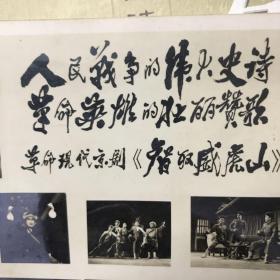 人民战争的伟大史诗
革命英雄的壮丽赞歌
革命现代京剧《智取威虎山》